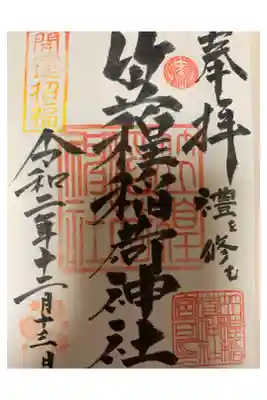 奉拝
禮を修む
笠䅣稲荷神社
開運招福
令和二年十二月十三日